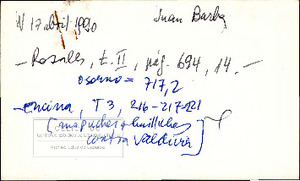 17 abril 1990
Juan Barba
- Rosales, t. II, pág. 694, 14. -
Osorno = 717,2
- Encina, T 3, 216-217-221
(mapuches + huilliches
contra Valdivia)